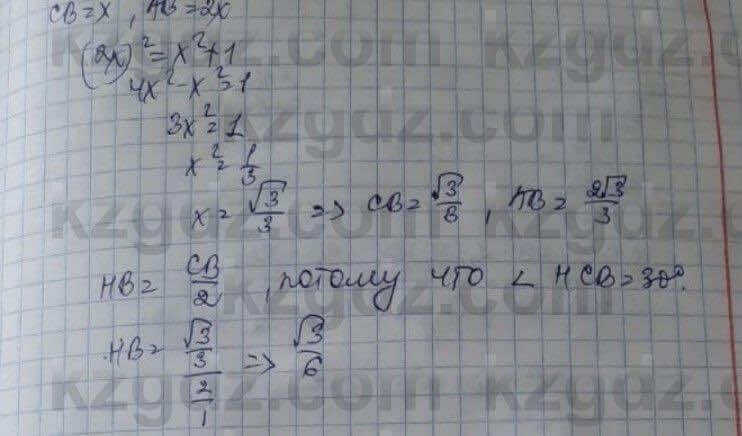 CB = x, AB = 2x
(2x)² = x² + 1
4x² - x² = 1
3x² = 1
x² = 1/3
x = √3/3 => CB = √3/3, AB = 2√3/3
HB = CB/2, потому что < HCB = 30°.
HB = √3/3 / 2/1 => √3/6
kzgdz.com kzgdz.com
kzgdz.com
kzgdz.com kzgdz.com
kzgdz.com
kzgdz.com kzgdz.com